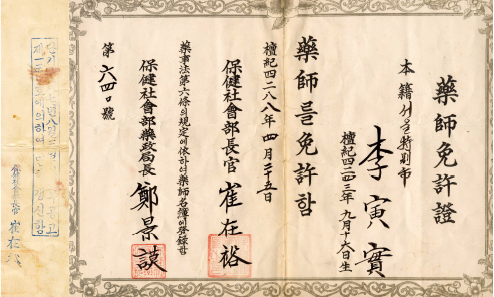 藥師免許證
本籍 서울特別市
李寅實
檀紀四二四三年 九月十六日生
藥師를免許함
檀紀四二八八年 四月二十五日
保健社會部長官 崔在裕
藥事法第六條의規定에依하여藥師名簿에登錄함
保健社會部藥政局長 鄭景謨
第六四〇號